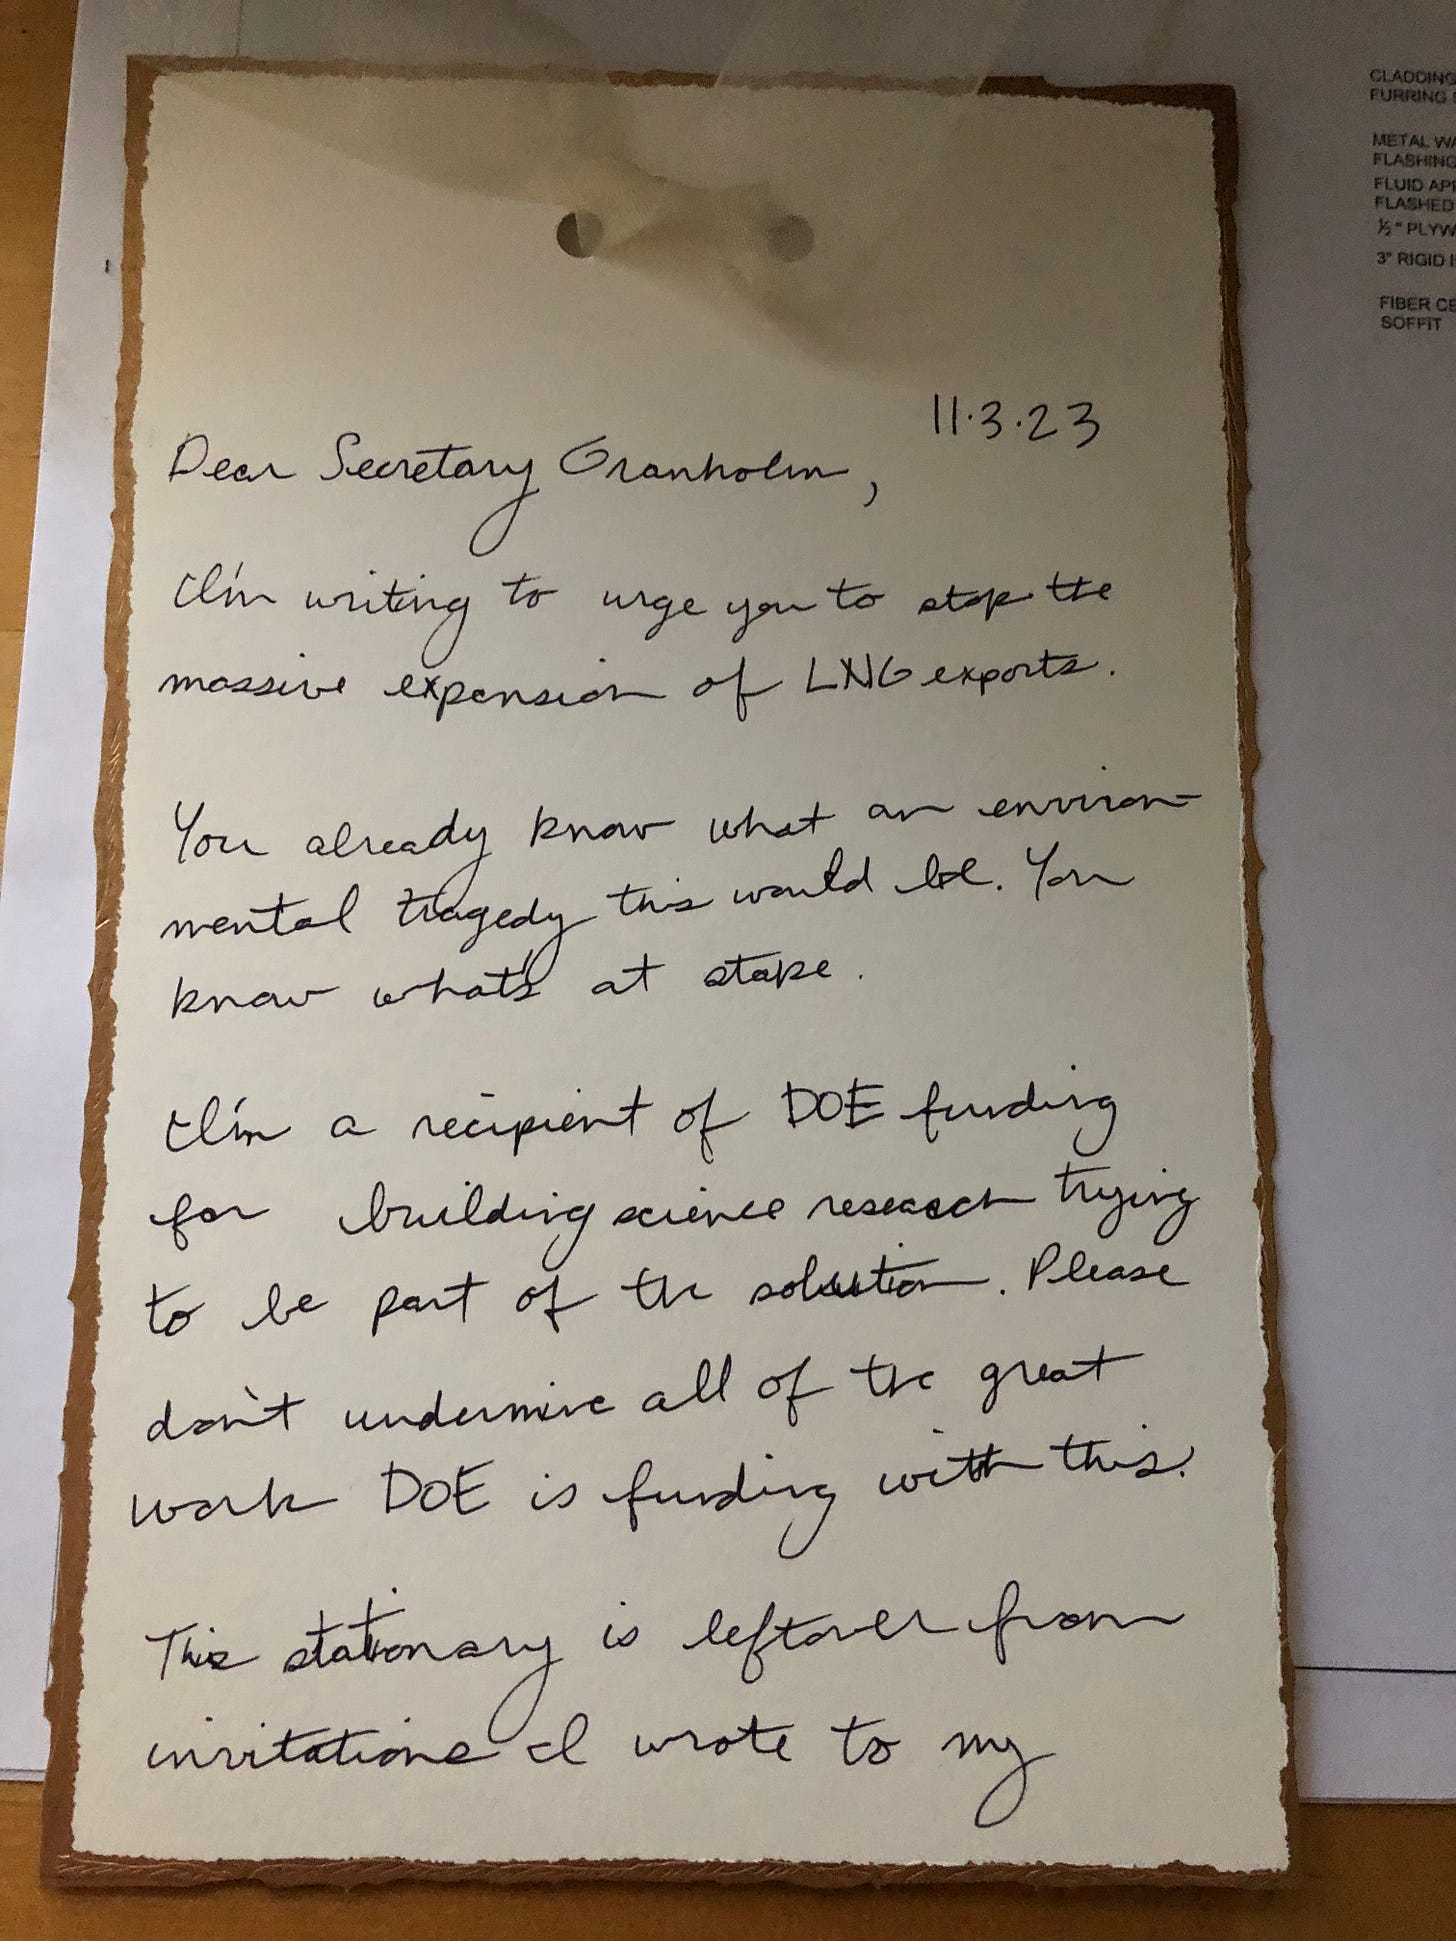 CLADDING
FURRING
METAL WA
FLASHING
FLUID AP
FLASHED
½" PLYW
3" RIGID I
FIBER CE
SOFFIT
11.3.23
Dear Secretary Granholm,
I'm writing to urge you to stop the
massive expansion of LNG exports.
You already know what an environ-
mental tragedy this would be. You
know what's at stake.
I'm a recipient of DOE funding
for building science research trying
to be part of the solution. Please
don't undermine all of the great
work DOE is funding with this.
This stationary is leftover from
invitations I wrote to my